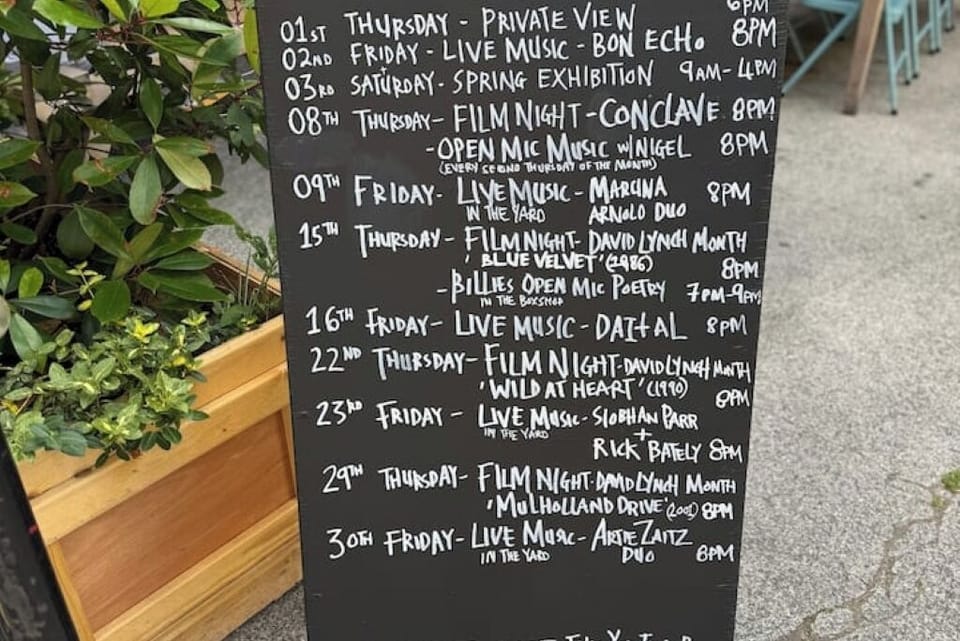 6PM
01ST THURSDAY - PRIVATE VIEW 8PM
02ND FRIDAY - LIVE MUSIC - BON ECHO
03RD SATURDAY - SPRING EXHIBITION 9AM - 4PM
08TH THURSDAY - FILM NIGHT - CONCLAVE 8PM
- OPEN MIC MUSIC W/NIGEL 8PM
(EVERY SECOND THURSDAY OF THE MONTH)
09TH FRIDAY - LIVE MUSIC - MARCINA 8PM
IN THE YARD ARNOLD DUO
15TH THURSDAY - FILM NIGHT - DAVID LYNCH MONTH
'BLUE VELVET' (1986) 8PM
- BILLIES OPEN MIC POETRY 7PM-9PM
IN THE BOXSHOP
16TH FRIDAY - LIVE MUSIC - DAITAL 8PM
22ND THURSDAY - FILM NIGHT - DAVID LYNCH MONTH
'WILD AT HEART' (1990) 8PM
23RD FRIDAY - LIVE MUSIC - SIOBHAN PARR
IN THE YARD +
RICK BATELY 8PM
29TH THURSDAY - FILM NIGHT - DAVID LYNCH MONTH
'MULHOLLAND DRIVE' (2001) 8PM
30TH FRIDAY - LIVE MUSIC - ARTIE ZAITZ
IN THE YARD DUO 8PM